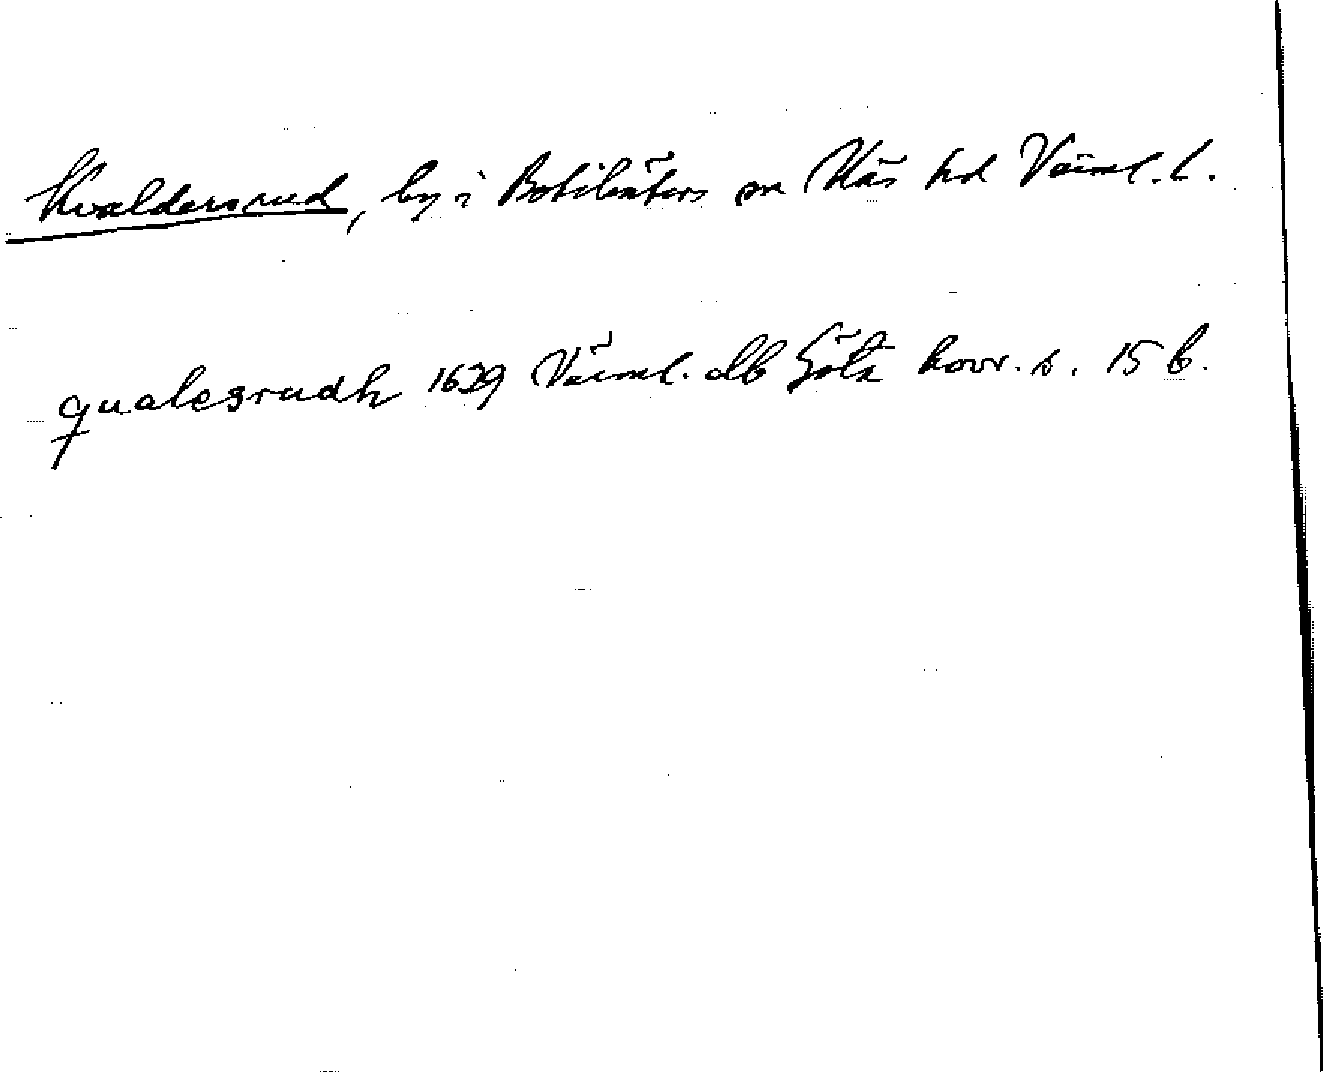 Kvaldersrud, by i Botilsäters sn Näs hd Värml. l.
qualesrudh 1639 Värml. db Götà hovr. s. 15 b.